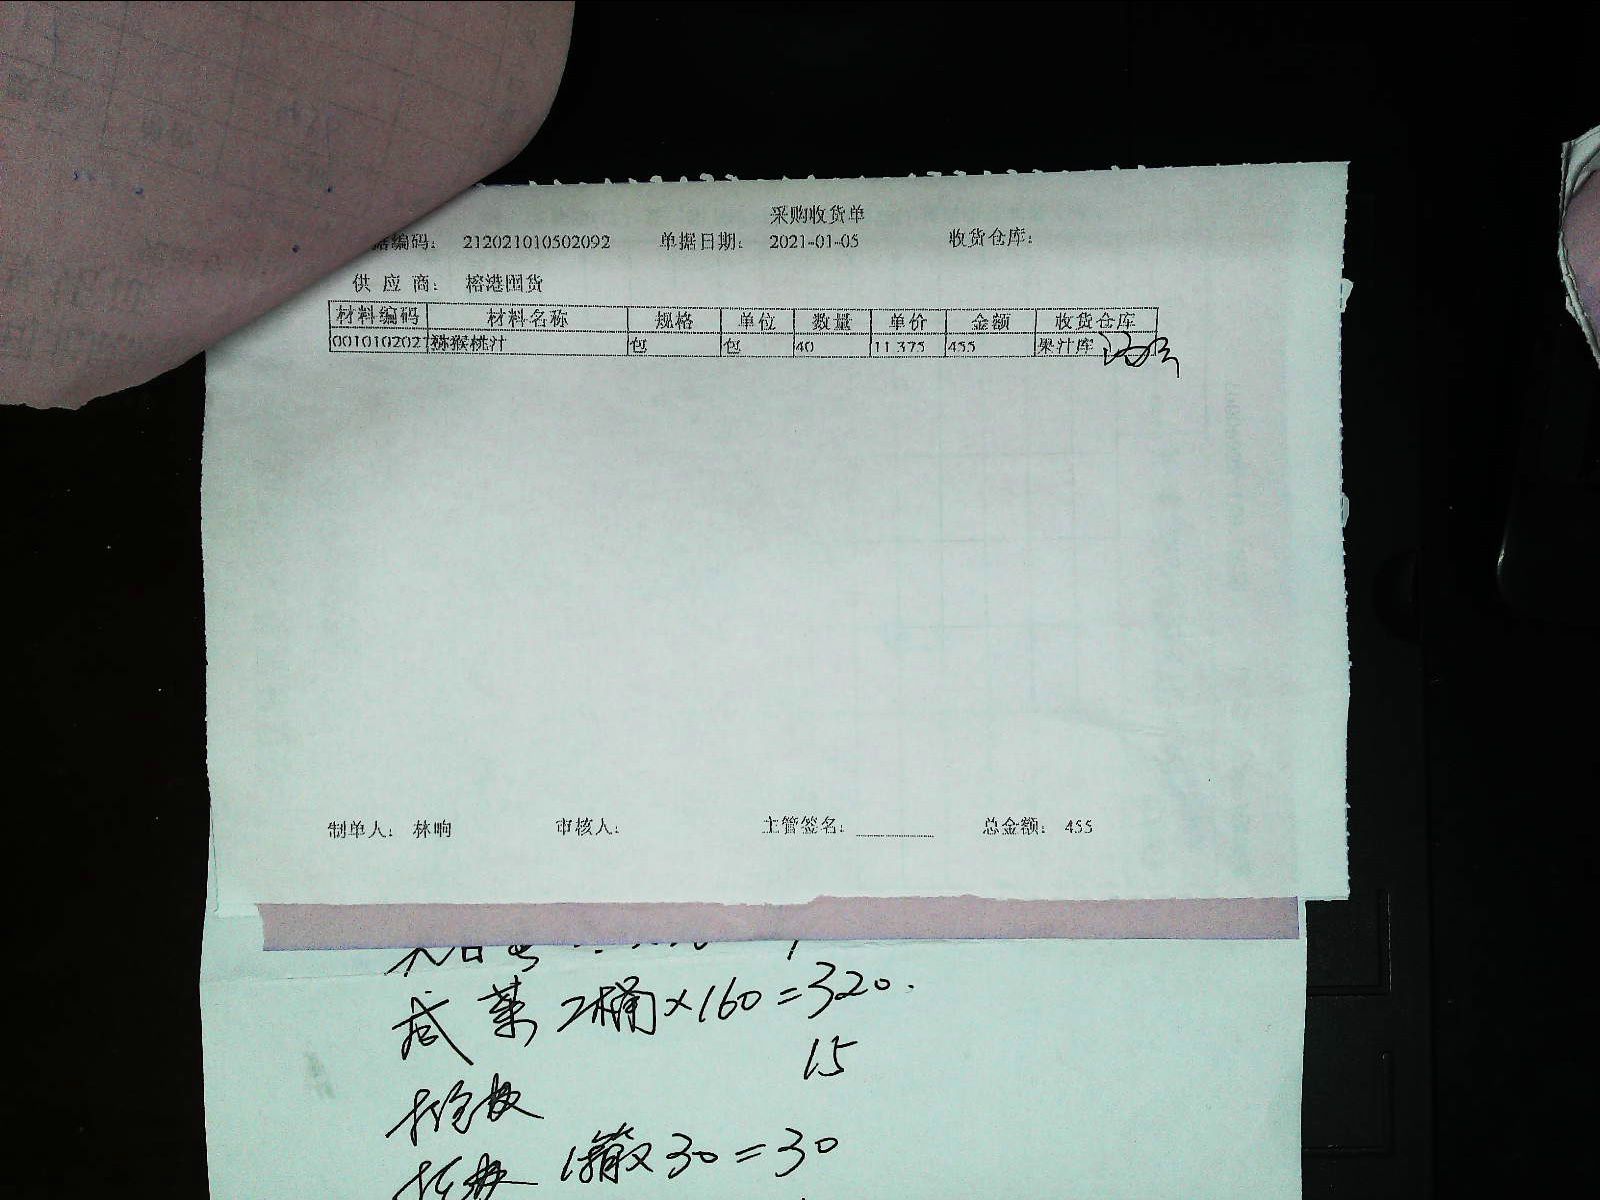 采购收货单
据编码： 212021010502092 单据日期： 2021-01-05 收货仓库：
供 应 商： 榕港囤货
材料编码 材料名称 规格 单位 数量 单价 金额 收货仓库
0010102027 猕猴桃汁 包 包 40 11.375 455 果汁库
制单人： 林晌 审核人： 主管签名： 总金额： 455
咸菜 2桶×160=320.
15
30=30